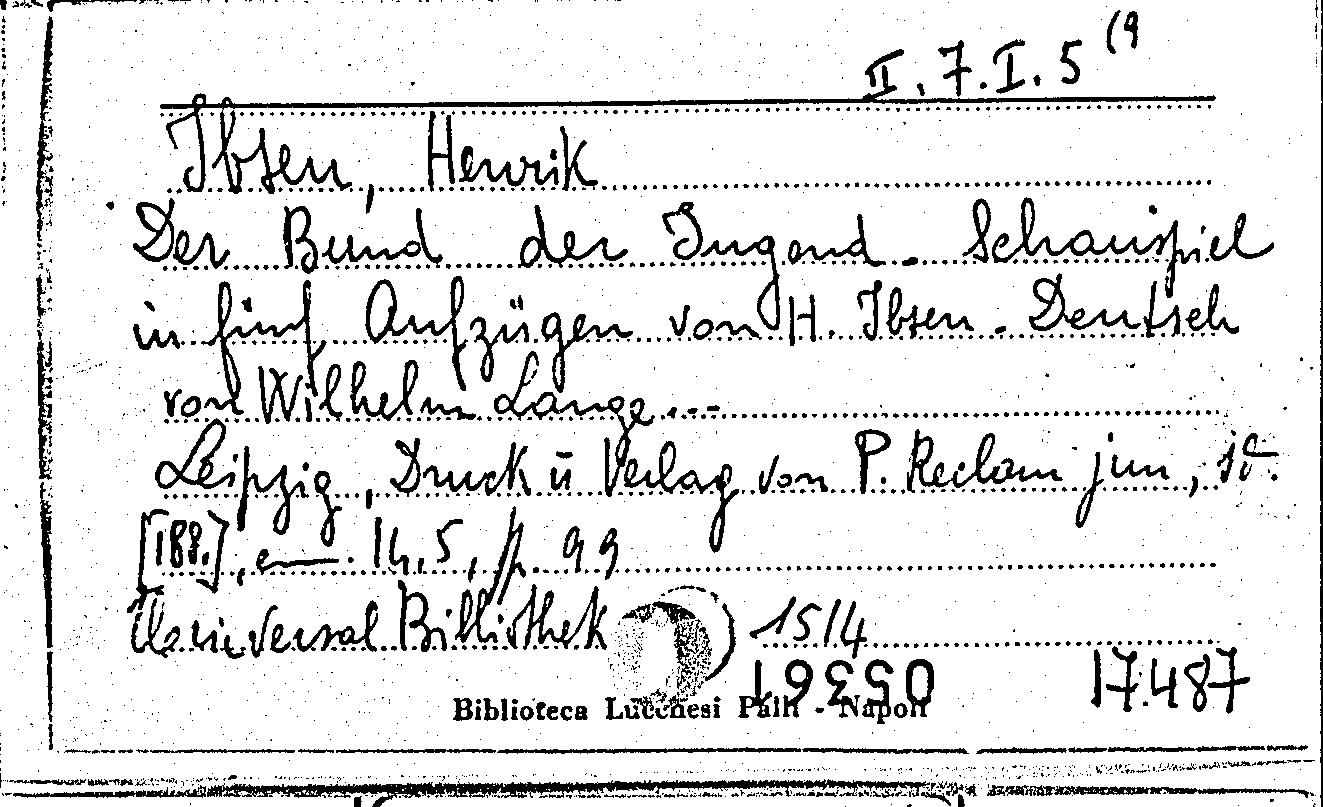 II. 7. I. 5 (9
Ibsen, Henrik
Der Bund der Jugend. Schauspiel
in fünf Aufzügen von H. Ibsen. Deutsch
von Wilhelm Lange...
Leipzig, Druck u Verlag von P. Reclam jun,
[188.], 14,5, p. 99
Universal Bibliothek) 1514
05361 17.487
Biblioteca Lucchesi Palli - Napoli